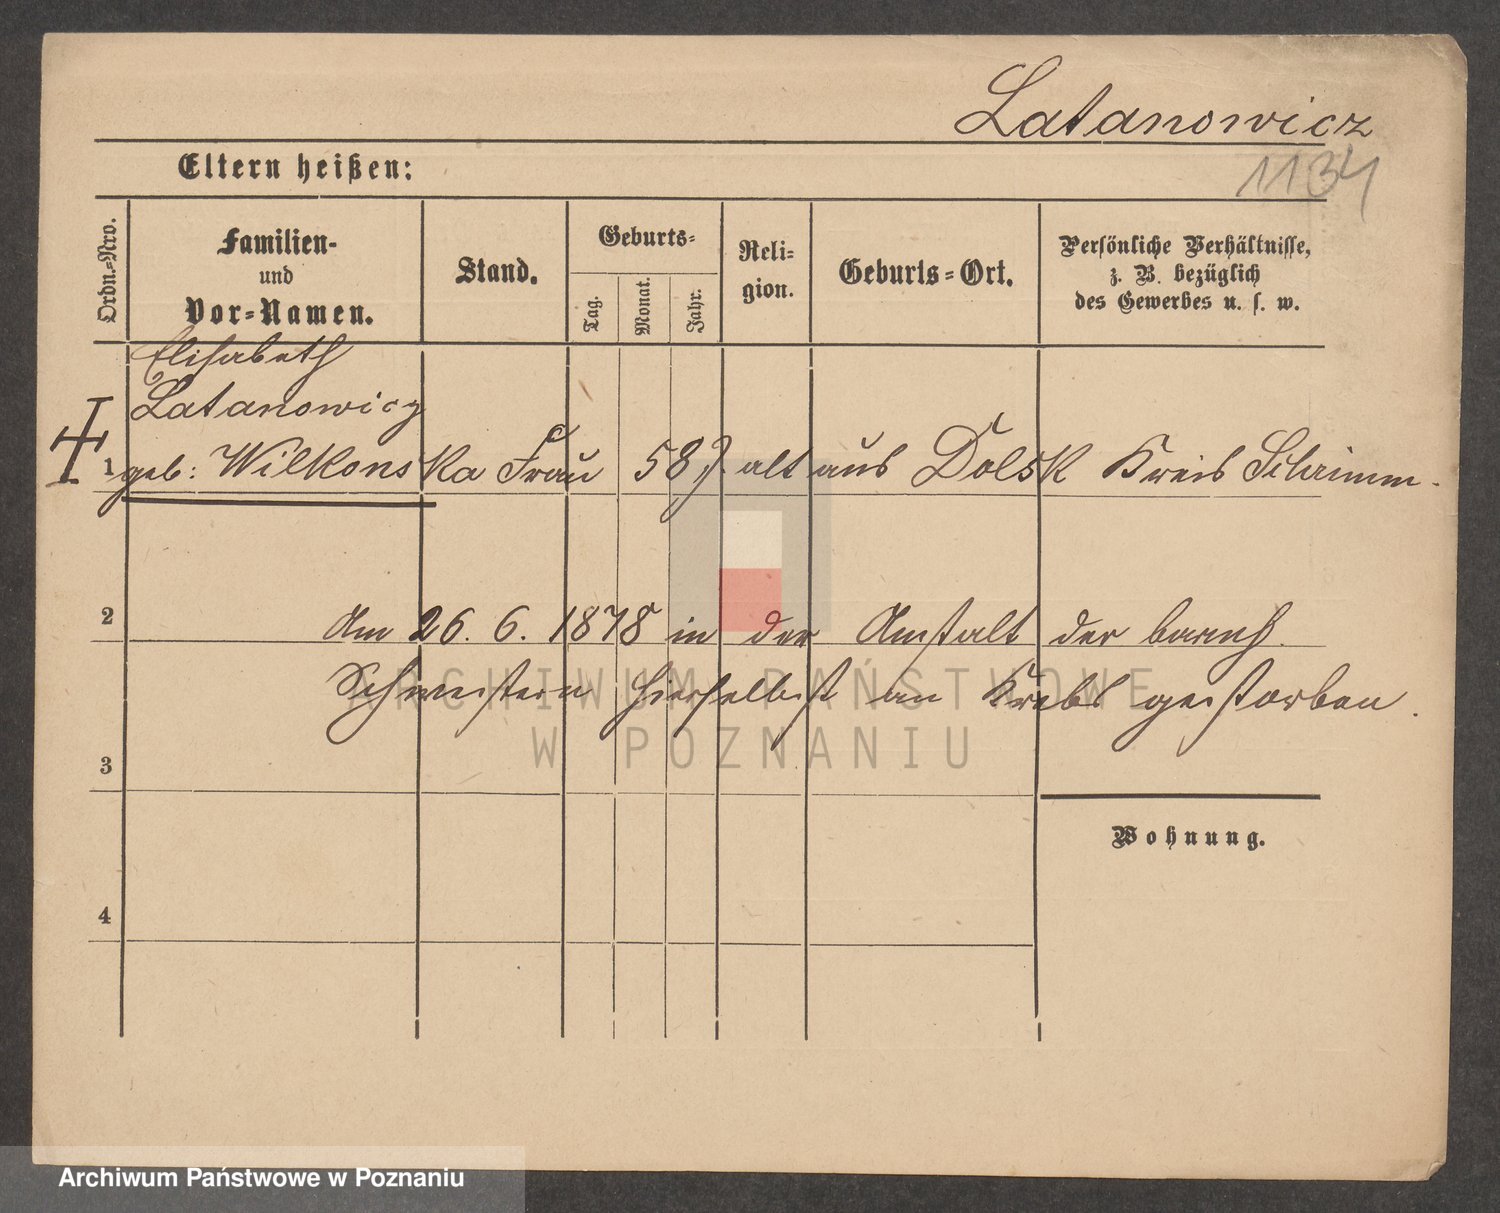 Latanowicz
1134
Eltern heißen:
Ordn.=Nro.
Familien-
und
Vor=Namen.
Stand.
Geburts=
Tag.
Monat.
Jahr.
Reli=
gion.
Geburts=Ort.
Persönliche Verhältnisse,
z. B. bezüglich
des Gewerbes u. s. w.
Elisabeth
Latanowicz
1 geb: Wilkonska Frau 58 J. alt aus Dolsk Kreis Schrimm.
2
Am 26. 6. 1878 in der Anstalt der barmh.
Schwestern hierselbst an Krebs gestorben.
ARCHIWUM PAŃSTWOWE
W POZNANIU
3
Wohnung.
4
Archiwum Państwowe w Poznaniu